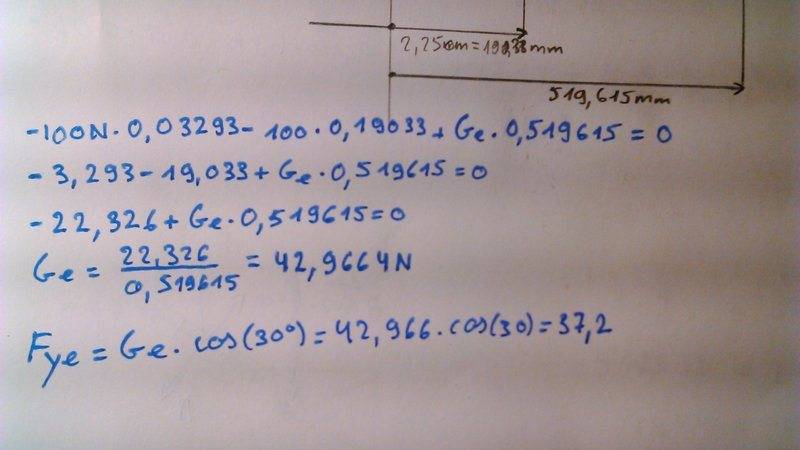 2,25cm=190,33mm
519,615mm
-100N·0,03293-100·0,19033+Ge·0,519615=0
-3,293-19,033+Ge·0,519615=0
-22,326+Ge·0,519615=0
Ge=22,326/0,519615=42,9664N
Fye=Ge·cos(30°)=42,966·cos(30)=37,2